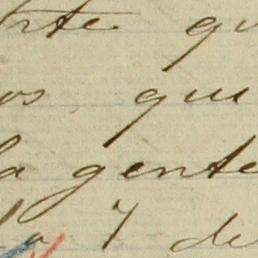 rte qu
os que
la gente
la 7 de